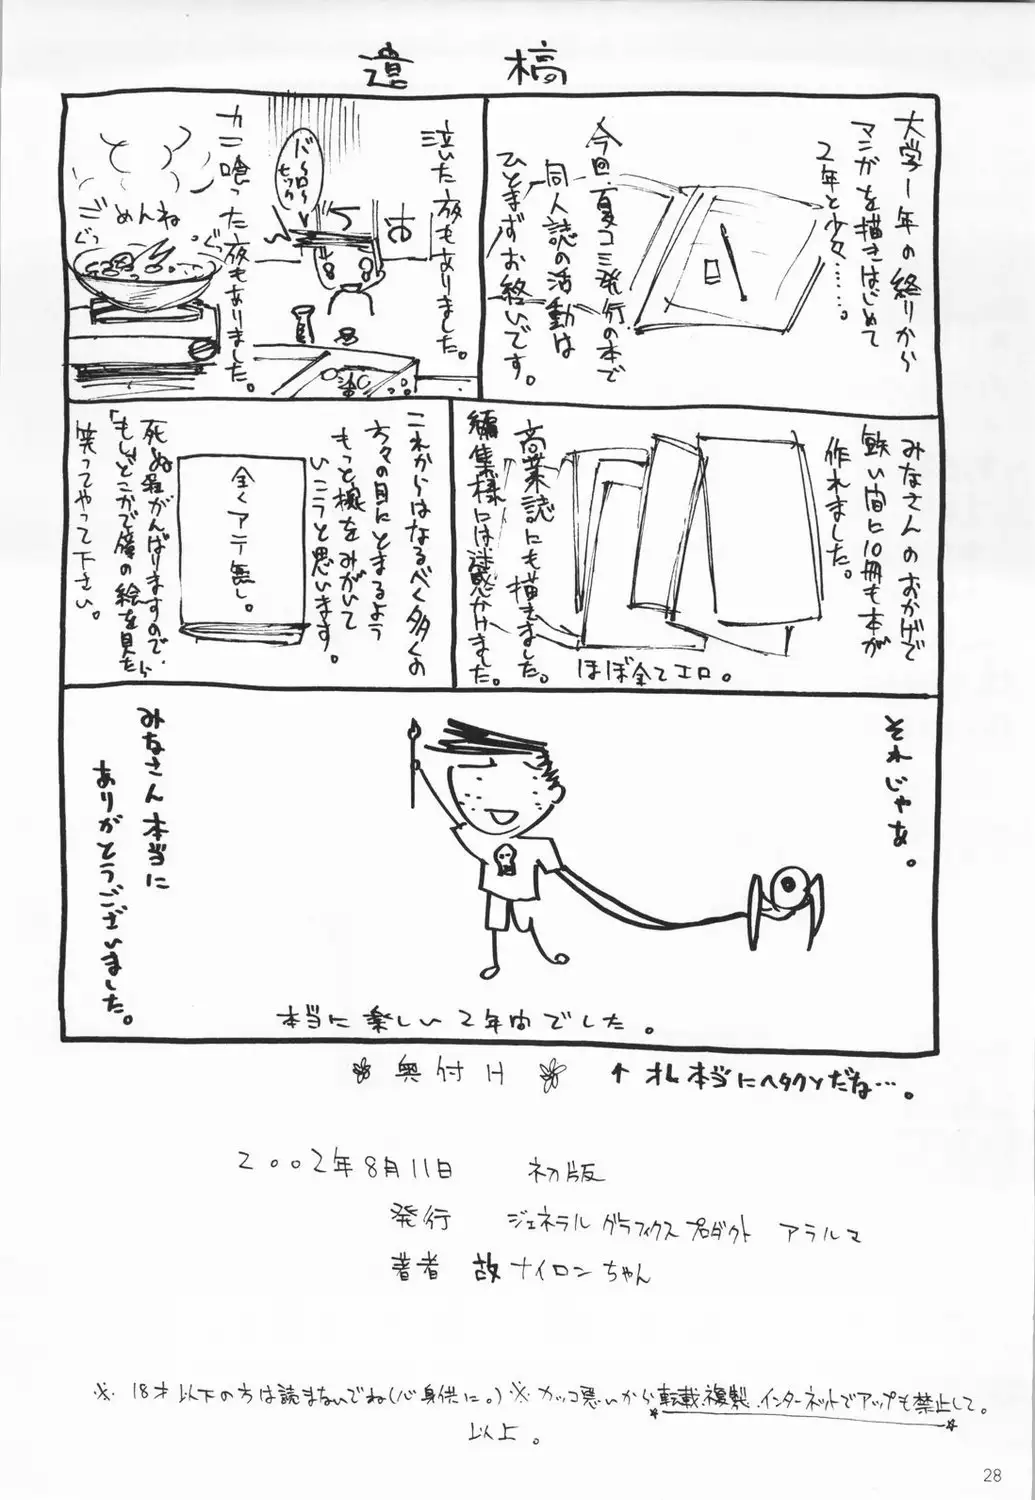 遺稿
大学1年の終りから
マンガを描きはじめて
2年と少々……。
今回、夏コミ発行の本で
同人誌の活動は
ひとまずお終いです。
泣いた夜もありました。
バーローヒック
カニ喰った夜もありました。
ごめんね
ぐつ
ぐつ
みなさんのおかげで
短い間に10冊も本が
作れました。
ほぼ全てエロ。
商業誌にも描きました。
編集様には迷惑かけました。
これからはなるべく多くの
方々の目にとまるよう
もっと腕をみがいて
いこうと思います。
全くアテ無し。
死ぬ程がんばりますので、
「もしどこかで僕の絵を見たら
笑ってやって下さい。
それじゃあ。
みなさん本当に
ありがとうございました。
本当に楽しい2年間でした。
奥付け
↑オレ本当にヘタクソだね…。
2002年8月11日 初版
発行 ジェネラルグラフィクスプロダクト アラルマ
著者 故ナイロンちゃん
※18才以下の方は読まないでね(心身供に。)※カッコ悪いから転載、複製、インターネットでアップも禁止して。
以上。
28